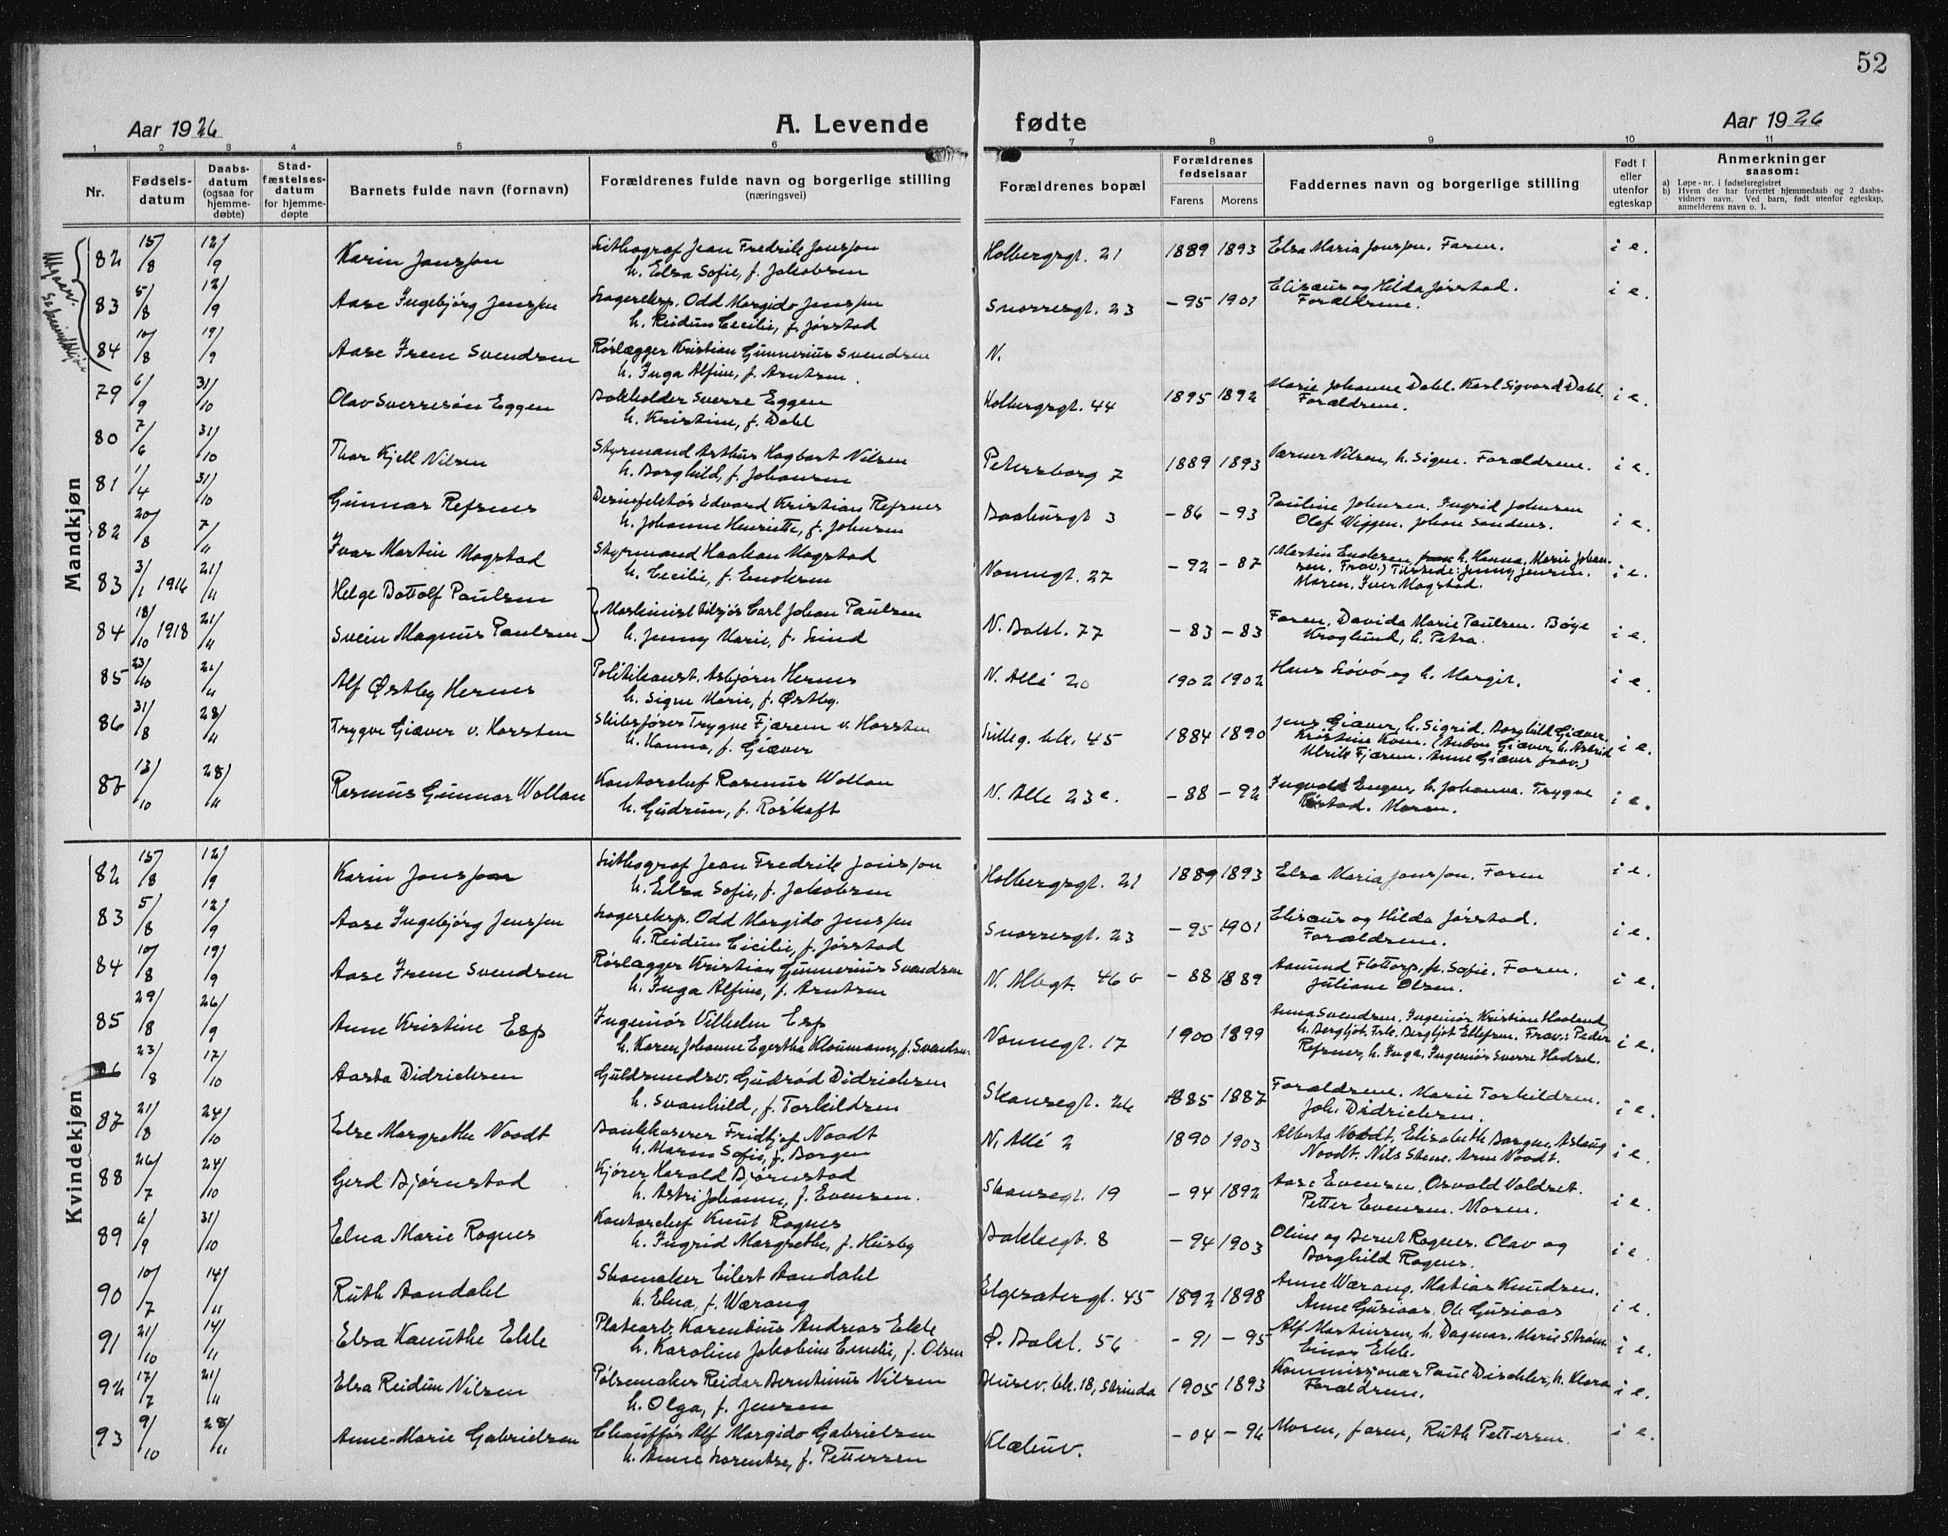 52
Aar 1926 A. Levende fødte Aar 1926
1 2 3 4 5 6 7 8 9 10 11
Nr. Fødselsdatum Daabsdatum (ogsaa for hjemmedøbte) Stadfæstelsesdatum for hjemmedøpte Barnets fulde navn (fornavn) Forældrenes fulde navn og borgerlige stilling (næringsvei) Forældrenes bopæl Forældrenes fødselsaar Farens Morens Faddernes navn og borgerlige stilling Født i eller utenfor egteskap Anmerkninger saasom:
a) Løpe-nr. i fødselsregistret
b) Hvem der har forrettet hjemmedaab og 2 daabsvidners navn. Ved barn, født utenfor egteskap, anmelderens navn o. l.
Mandkjøn
82 15/8 12/9 Karin Jonsson Lithograf Jean Fredrik Jonsson Holbergsgt. 21 1889 1893 Elsa Maria Jonsson. Faren. i e.
h. Elsa Sofie, f. Jakobsen
83 5/8 12/9 Aase Ingebjørg Jenssen Lagereksp. Odd Margido Jenssen Snorresgt. 23 -95 1901 Elisæus og Hilda Jørstad. i e.
h. Reidun Cecilie, f. Jørstad Forældrene.
84 10/8 19/9 Aase Irene Svendsen Rørlægger Kristian Gunnerius Svendsen N.
h. Inga Alfine, f. Arntsen.
79 6/9 31/10 Olav Sverresøn Eggen Bokholder Sverre Eggen Holbergsgt. 44 1895 1892 Marie Johanne Dahl. Karl Sigvard Dahl. i e.
h. Kristine, f. Dahl Forældrene.
80 7/6 31/10 Thor Kjell Nilsen Styrmand Arthur Hagbart Nilsen Petersborg 7 1889 1893 Varner Nilsen, h. Signe. Forældrene. i e.
h. Borghild, f. Johansen
81 1/4 31/10 Gunnar Refsnes Desinfektør Edvard Kristian Refsnes Baahusgt 3 -86 -93 Pauline Johnsen, Ingrid Johnsen i e.
h. Johanne Henriette, f. Johnsen Olaf Viggen. Johan Sandnes.
82 20/8 7/11 Ivar Martin Mogstad Styrmand Haakon Mogstad Vonnegt. 27 -92 -87 (Martin Enoksen, h. Hanna, Marie Johansen. Frav.) Tilstede: Jenny Jensen. i e.
h. Cecilie, f. Enoksen Moren. Iver Mogstad.
83 3/1 1916 21/11 Helge Bottolf Paulsen Maskinist Carl Johan Paulsen N. Bakl. 77 -83 -83 Faren. Davida Marie Paulsen. Børe
84 18/10 1918 21/11 Svein Magnus Paulsen h. Jenny Marie, f. Lind Kroglund, h. Petra. i e.
85 23/10 21/11 Alf Østby Hernes Politikonst. Asbjørn Hernes N. Allé 20 1902 1902 Hans Løvø og h. Margit. i e.
h. Signe Marie, f. Østby.
86 31/8 28/11 Trygve Giæver v. Karsten Skibsfører Trygve Fjærem v. Karsten Lilleg. bk. 45 1884 1890 Jens Giæver, h. Sigrid. Borghild Giæver. i e.
h. Hanna, f. Giæver Kristine Kvien. (Anton Giæver, h. Astrid
Ulrik Fjærem. Anne Giæver frav.)
87 13/10 28/11 Rasmus Gunnar Wollan Kontorchef Rasmus Wollan N. Alle 23c. -88 -92 Ingvald Engen, h. Johanna. Trygve i e.
h. Gudrun, f. Roskaft Moren.
Kvindekjøn
82 15/8 12/9 Karin Jonsson Lithograf Jean Fredrik Jonsson Holbergsgt. 21 1889 1893 Elsa Maria Jonsson. Faren i e.
h. Elsa Sofie, f. Jakobsen
83 5/8 12/9 Aase Ingebjørg Jenssen Lagereksp. Odd Margido Jenssen Snorresgt. 23 -95 1901 Elisæus og Hilda Jørstad. i e.
h. Reidun Cicilie, f. Jørstad Forældrene.
84 10/8 19/9 Aase Irene Svendsen Rørlægger Kristian Gunnerius Svendsen N. Allegt. 46 b -88 1889 Aamund Flottorp, h. Sofie. Faren. i e.
h. Inga Alfine, f. Arntsen Juliane Olsen.
85 29/8 26/9 Anne Kristine Esp Ingeniør Vilhelm Esp Vonnegt. 17 1900 1899 Anna Svendsen. Ingeniør Kristian Haaland, i e.
h. Karen Johanne Egertha Kloumann, f. Svendsen h. Bergljot. Frk. Bergljot Ellefsen. Frav: Peder
Refsnes, h. Inga. Ingeniør Sverre Hadsel.
86 23/8 17/10 Aasta Didrichsen Guldsmedsv. Gudrød Didrichsen Skansegt. 26 1885 1887 Forældrene. Marie Torkildsen. i e.
h. Svanhild, f. Torkildsen Joh. Didrichsen.
87 21/8 24/10 Else Margrethe Noodt Bankkaserer Fridtjof Noodt N. Allé 2 1890 1903 Alberta Noodt, Elisabeth Borgen, Aslaug i e.
h. Maren Sofie, f. Borgen Noodt. Nils Stene. Arne Noodt.
88 26/7 24/10 Gerd Bjørnstad Kjører Harald Bjørnstad Skansegt. 19 -94 1892 Aase Evensen. Osvald Voldset. i e.
h. Astri Johanne, f. Evensen. Petter Evensen. Moren.
89 6/9 31/10 Elna Marie Rognes Kontorchef Knut Rognes Bakkegt. 8 -94 1903 Oline og Bernt Rognes. Olav og i e.
h. Ingrid Margrethe, f. Husby Borghild Rognes.
90 10/7 14/11 Ruth Aandahl Skomaker Eilert Aandahl Elgesætergt. 45 1892 1898 Anne Wærang. Matias Knudsen. i e.
h. Elna, f. Wærang Anne Gusiaas. Ole Gusiaas
91 21/10 14/11 Elsa Kanuthe Ekle Platearb. Karentius Andreas Ekle Ø. Bakl. 56 -91 -95 Alf Martinsen, h. Dagmar. Marie Strøm. i e.
h. Karoline Jakobine Emelie, f. Olsen Einar Ekle.
92 17/7 21/11 Elsa Reidun Nilsen Pølsemaker Reidar Berntinus Nilsen Beusev. bk. 18, Strinda 1905 1893 Kommissionær Paul Dischler, h. Klara i e.
h. Olga, f. Jensen Forældrene.
93 9/10 28/11 Anne-Marie Gabrielsen Chauffør Alf Margido Gabrielsen Klæbuv. -04 -96 Moren, faren, Ruth Pettersen. i e.
h. Anne Lorentse, f. Pettersen